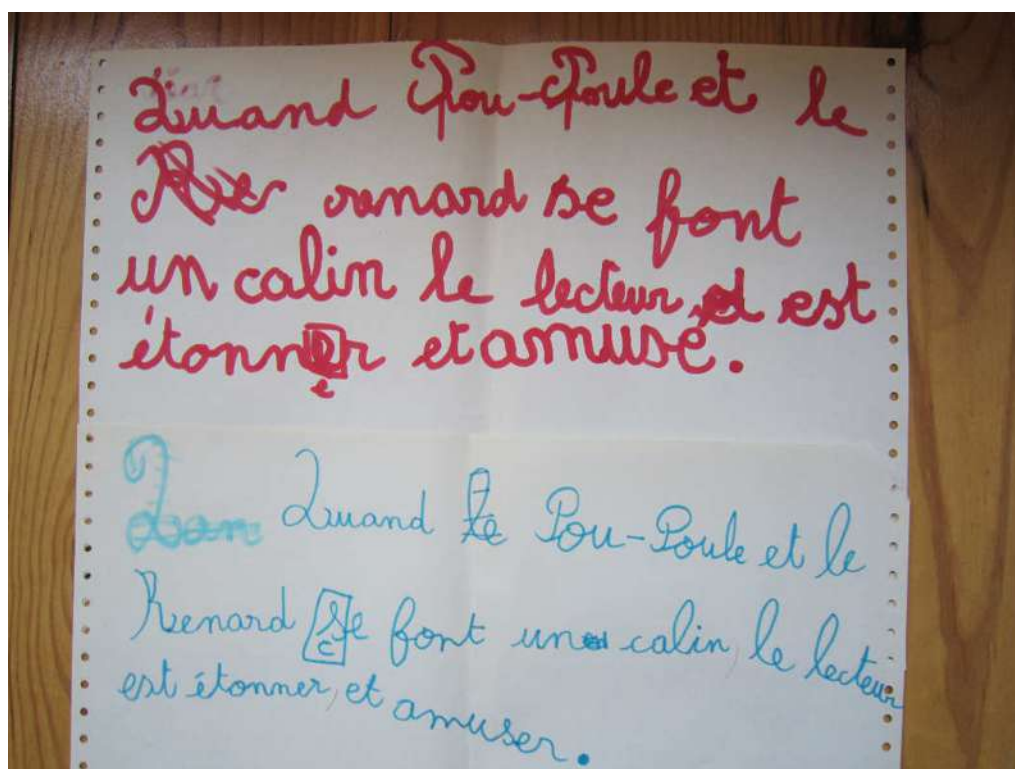 Quand Pou-Poule et le
renard se font
un calin le lecteur, est
étonner et amusé.
e
Quand Pou-Poule et le
Renard se font un calin, le lecteur
c
est étonner, et amuser.